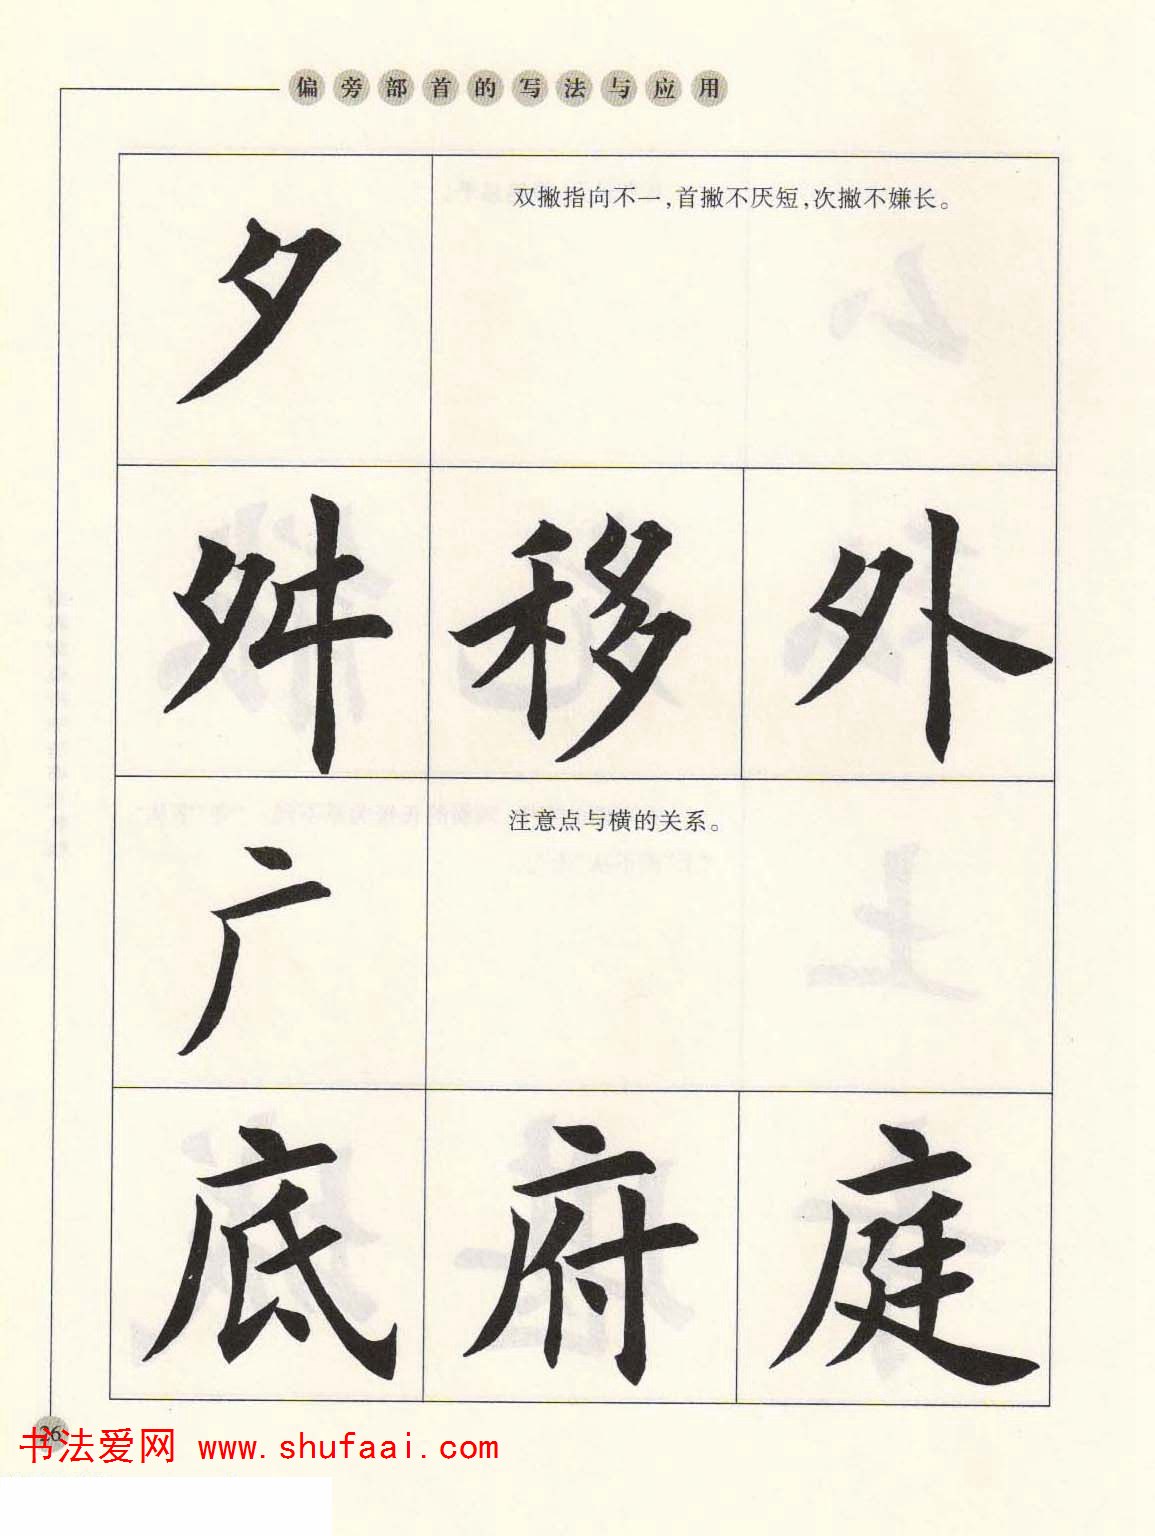 偏旁部首的写法与应用
夕
双撇指向不一，首撇不厌短，次撇不嫌长。
舛 移 外
广
注意点与横的关系。
底 府 庭
26
书法爱网 www.shufaai.com